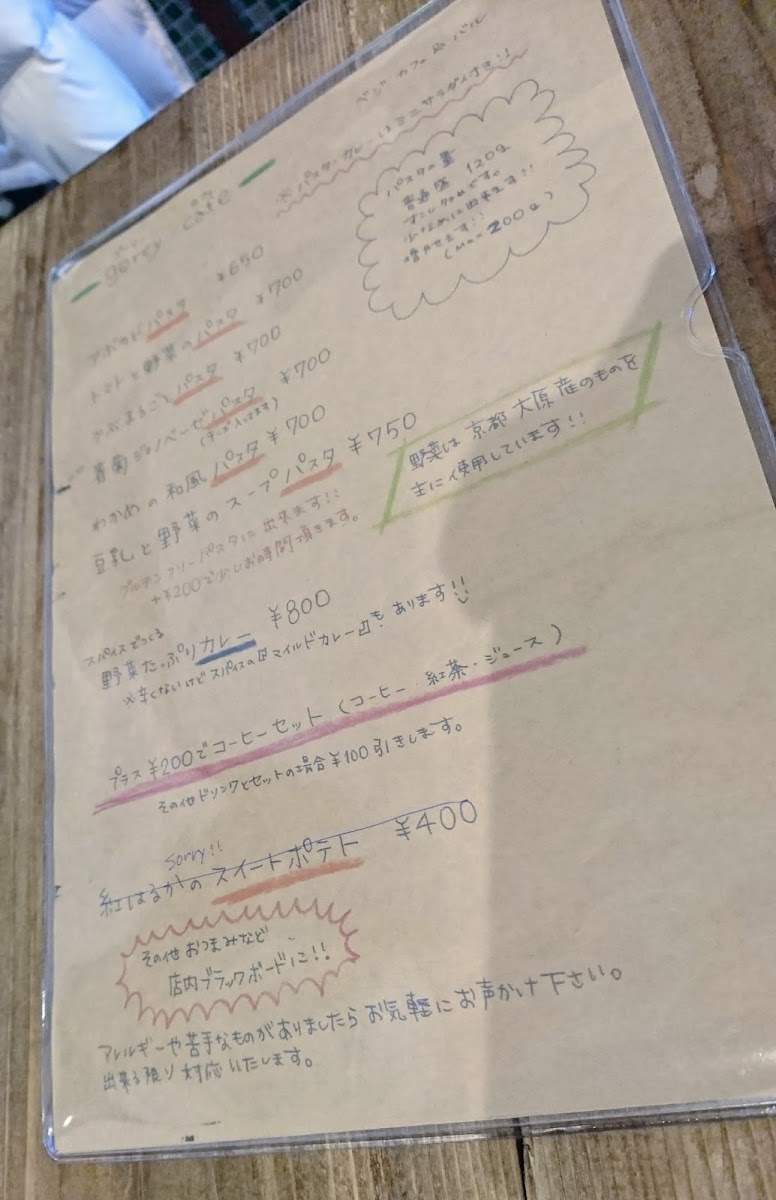 ベジ カフェ & バル
cafe
※パスタ・カレーはミニサラダ付き!!
パスタの量
普通盛 120g
すこし少なめです。
少なめに出来ます!!
増やせます!!
(Max 200g)
アボカドパスタ ¥650
トマトと野菜のパスタ ¥700
かぶまるごとパスタ ¥700
春菊ジェノベーゼパスタ ¥700
(チーズ入ってます)
わかめの和風パスタ ¥700
豆乳と野菜のスープパスタ ¥750
グルテンフリーパスタに出来ます!!
+¥200で少しお時間頂きます。
野菜は京都大原産のものを
主に使用しています!!
スパイスでつくる
野菜たっぷりカレー ¥800
※辛くないけどスパイスの『マイルドカレー』もあります!!
プラス¥200でコーヒーセット(コーヒー・紅茶・ジュース)
その他ドリンクとセットの場合¥100引きします。
Sorry!!
紅はるかのスイートポテト ¥400
その他おつまみなど
店内ブラックボードに!!
アレルギーや苦手なものがありましたらお気軽にお声かけ下さい。
出来る限り対応いたします。